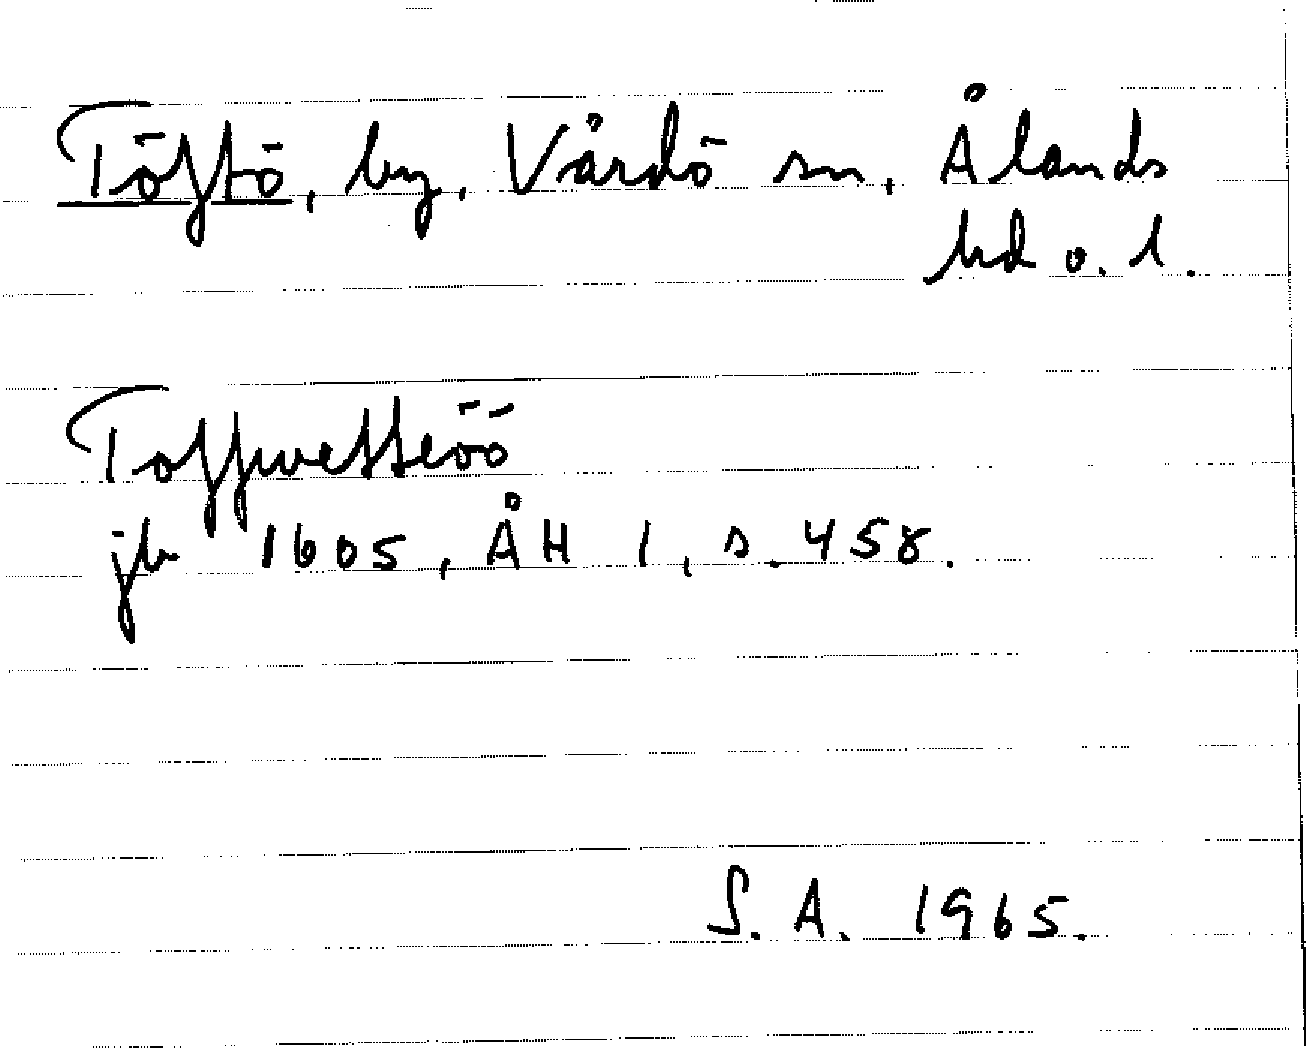 Töftö, by, Vårdö sn, Ålands
hd o. l.
Toffwetteöö
jb 1605, ÅH 1, s. 458.
S. A. 1965.